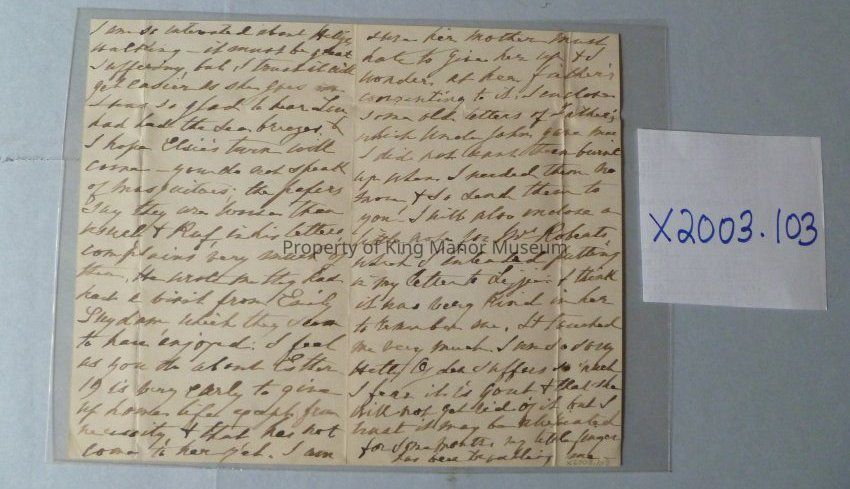 I am so interested about
walking - it must be great
suffering but I trust it will
get easier as she goes on
I was so glad to hear
had had the sea breezes, &
I hope Elsie's turn will
come - you do not speak
of mosquitoes. the papers
say they are worse than
usual & Ruf in his letters
complains very much of
them, He wrote me they had
had a visit from
which they seem
to have enjoyed. I feel
as you do about Esther
19 is very early to give
up home life except from
necessity & that has not
come to her yet. I am
sure her mother must
hate to give her up & I
wonder at her father's
consenting to it. I enclose
some old letters of Father's
which Uncle John gave me
I did not want them burnt
up when I needed them no
more & so send them to
you. I will also enclose a
Roberts
which I intended putting
in my letter to I think
it was very kind in her
to remember me. It touched
me very much I am so sorry
dear suffers so much
I fear it is gout & that she
will not get rid of it but I
trust it may be alleviated
for some months my little finger
has been troubling me
Property of King Manor Museum
X2003.103
X2003.103